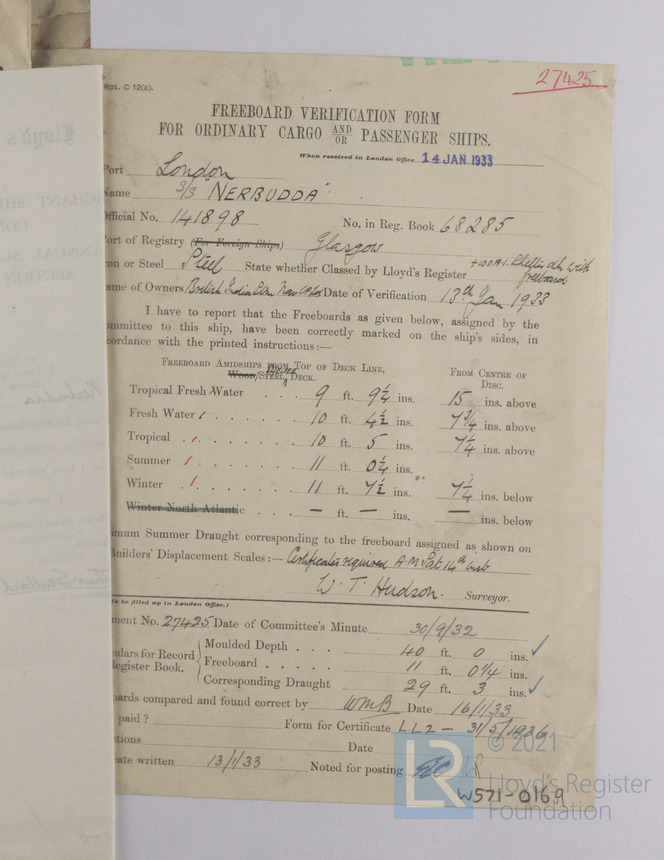 27425
Rpt. C 12(a).
FREEBOARD VERIFICATION FORM
FOR ORDINARY CARGO AND OR PASSENGER SHIPS.
When received in London Office 14 JAN 1933
Port London
Name S/S NERBUDDA
Official No. 141898 No. in Reg. Book 68285
Port of Registry (For Foreign Ships) Glasgow
Iron or Steel Steel State whether Classed by Lloyd's Register +100A1. Shelter dk with freeboard
Name of Owners British India Stm. Nav. Co. Ld Date of Verification 13th Jan 1933
I have to report that the Freeboards as given below, assigned by the
committee to this ship, have been correctly marked on the ship's sides, in
accordance with the printed instructions:—
FREEBOARD AMIDSHIPS FROM TOP OF DECK LINE,
WOOD/STEEL DECK.
FROM CENTRE OF DISC.
Tropical Fresh Water . . . 9 ft. 9¼ ins. 15 ins. above
Fresh Water . . . . . . 10 ft. 4½ ins. 7¾ ins. above
Tropical . . . . . . . 10 ft. 5 ins. 7¼ ins. above
Summer . . . . . . . 11 ft. 0¼ ins.
Winter . . . . . . . 11 ft. 7½ ins. 7¼ ins. below
Winter North Atlantic . . . . . — ft. — ins. — ins. below
imum Summer Draught corresponding to the freeboard assigned as shown on
Builders' Displacement Scales:— Certificates required A.M. Sat 14th inst
W. T. Hudson. Surveyor.
To be filled up in London Office.)
ment No. 27425 Date of Committee's Minute 30/9/32
ulars for Record Register Book.
Moulded Depth . . . . 40 ft. 0 ins.
Freeboard . . . . . 11 ft. 0¼ ins.
Corresponding Draught 29 ft. 3 ins.
oards compared and found correct by WMB Date 16/1/33
paid ? Form for Certificate LL2 — 31/5/1926
ctions Date
cate written 13/1/33 Noted for posting
W571-0169
LR
© 2021
Lloyd's Register
Foundation